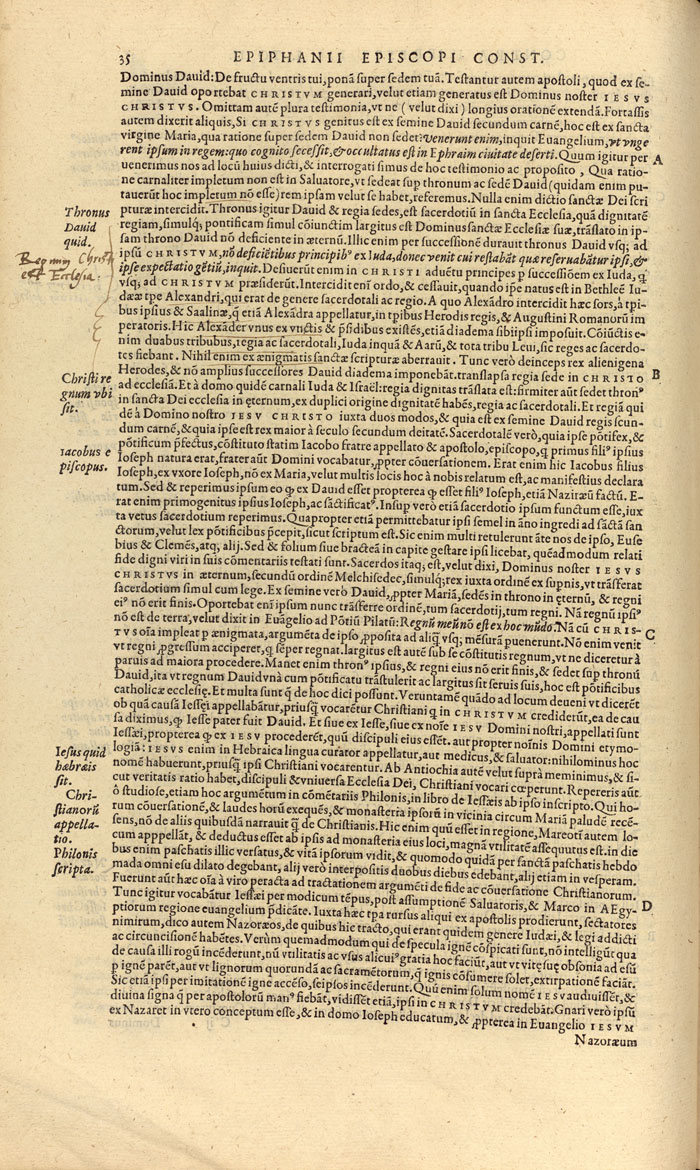 35
EPIPHANII EPISCOPI CONST.
Dominus Dauid: De fructu ventris tui, ponã super sedem tuã. Testantur autem apostoli, quod ex se-
mine Dauid oportebat CHRISTVM generari, velut etiam generatus est Dominus noster IESVS
CHRISTVS. Omittam autẽ plura testimonia, vt ne (velut dixi) longius orationẽ extendã. Fortassis
autem dixerit aliquis, Si CHRISTVS genitus est ex semine Dauid secundum carnẽ, hoc est ex sancta
virgine Maria, qua ratione super sedem Dauid non sedet: venerunt enim, inquit Euangelium, vt vnge
rent ipsum in regem: quo cognito secessit, & occultatus est in Ephraim ciuitate deserti. Quum igitur per
A
uenerimus nos ad locũ huius dicti, & interrogati simus de hoc testimonio ac proposito, Qua ratio-
ne carnaliter impletum non est in Saluatore, vt sedeat sup thronum ac sedẽ Dauid (quidam enim pu-
tauerũt hoc impletum nõ esse) rem ipsam velut se habet, referemus. Nulla enim dictio sanctæ Dei scri
Thronus
Dauid
quid.
pturæ intercidit. Thronus igitur Dauid & regia sedes, est sacerdotiũ in sancta Ecclesia, quã dignitatẽ
regiam, simulq; pontificam simul cõiunctim largitus est Dominus sanctæ Ecclesiæ suæ, trãslato in ip-
sam throno Dauid nõ deficiente in æternũ. Illic enim per successionẽ durauit thronus Dauid vsq; ad
est Ecclesia.
ipsũ CHRISTVM, nõ deficiẽtibus principibꝰ ex Iuda, donec venit cui restabãt quæ reseruabãtur ipsi, &
ipse expectatio gẽtiũ, inquit. Desuerũt enim in CHRISTI aduẽtu principes p successiõem ex Iuda, q
vsq; ad CHRISTVM præsiderũt. Interciditeni ordo, & cessauit, quando ipe natus est in Bethleẽ Iu-
dææ tpe Alexandri, qui erat de genere sacerdotali ac regio. A quo Alexãdro intercidit hæc sors, à tpi-
bus ipsius & Saalinæ, q̃ etiã Alexãdra appellatur, in tpibus Herodis regis, & Augustini Romanorũ im
peratoris. Hic Alexãder vnus ex vnctis & p̃sidibus existẽs, etiã diadema sibiipsi imposuit. Cõiũctis e-
nim duabus tribubus, regia ac sacerdotali, Iuda inquã & Aarũ, & tota tribu Leui, sic reges ac sacerdo-
tes fiebant. Nihil enim ex ænigmatis sanctæ scripturæ aberrauit. Tunc verò deinceps rex alienigena
Herodes, & nõ amplius successores Dauid diadema imponebãt. translapsa regia sede in CHRISTO
B
Christi re
gnum vbi
sit.
ad ecclesiã. Et à domo quidẽ carnali Iuda & Israël: regia dignitas trãslata est: firmiter aũt sedet thronꝰ
in sancta Dei ecclesia in ęternum, ex duplici origine dignitatẽ habẽs, regia ac sacerdotali. Et regiã qui
dẽ à Domino nostro IESV CHRISTO iuxta duos modos, & quia est ex semine Dauid regis secun-
dum carnẽ, & quia ipse est rex maior à seculo secundum deitatẽ. Sacerdotalẽ verò, quia ipse põtifex, &
Iacobus e
piscopus.
põtificum p̃fectus, cõstituto statim Iacobo fratre appellato & apostolo, episcopo, q primus filiꝰ ipsius
Ioseph natura erat, frater aũt Domini vocabatur, ꝓpter cõuersationem. Erat enim hic Iacobus filius
Ioseph, ex vxore Ioseph, nõ ex Maria, velut multis locis hoc à nobis relatum est, ac manifestius declara
tum. Sed & reperimus ipsum eo q̃ ex Dauid esset propterea q̃ esset filiꝰ Ioseph, etiã Naziræũ factũ. E-
rat enim primogenitus ipsius Ioseph, ac sãctificatꝰ. Insup verò etiã sacerdotio ipsum functum esse, iux
ta vetus sacerdotium reperimus. Quapropter etiã permittebatur ipsi semel in ãno ingredi ad sãctã san
ctorum, velut lex põtificibus p̃cepit, sicut scriptum est. Sic enim multi retulerunt ãte nos de ipso, Euse
bius & Clemẽs, atq; alij. Sed & folium siue bracteã in capite gestare ipsi licebat, quẽadmodum relati
fide digni viri in suis cõmentariis testati sunt. Sacerdos itaq; est, velut dixi, Dominus noster IESVS
CHRISTVS in æternum, secundũ ordinẽ Melchisedec, simulq; rex iuxta ordinẽ ex supnis, vt trãsferat
sacerdotium simul cum lege. Ex semine verò Dauid, ꝓpter Mariã, sedẽs in throno in ęternũ, & regni
eiꝰ nõ erit finis. Oportebat eni ipsum nunc trãsferre ordinẽ, tum sacerdotij, tum regni. Nã regnũ ipsiꝰ
nõ est de terra, velut dixit in Euãgelio ad Põtiũ Pilatũ: Regnũ meũ nõ est ex hoc mũdo. Nã cũ CHRIS-
C
TVS oĩa impleat p ænigmata, argumẽta de ipso ꝓposita ad aliq̃ vsq; mẽsurã puenerunt. Nõ enim venit
vt regni ꝓgressum acciperet, q seper regnat. largitus est autẽ sub se cõstitutis regnum, vt ne diceretur à
paruis ad maiora procedere. Manet enim thronꝰ ipsius, & regni eius nõ erit finis, & sedet sup thronũ
Dauid, ita vt regnum Dauid vnà cum põtificatu trãstulerit ac largitus sit seruis suis, hoc est põtificibus
catholicæ ecclesię. Et multa sunt q̃ de hoc dici possunt. Veruntamẽ quãdo ad locum deueni vt dicerẽt
ob quã causã Iessęi appellabãtur, priusq̃ vocarẽtur Christiani q in CHRISTVM crediderũt, ea de cau
sa diximus, q̃ Iesse pater fuit Dauid. Et siue ex Iesse, siue ex noĩe IESV Domini nostri, appellati sunt
Iessæi, propterea q̃ ex IESV procederẽt, quũ discipuli eius essẽt. aut propter noĩs Domini etymo-
Iesus quid
hæbreis
sit.
logiã: IESVS enim in Hebraica lingua curator appellatur, aut medicus, & saluator: nihilominus hoc
nomẽ habuerunt, priusq̃ ipsi Christiani vocarentur. Ab Antiochia autẽ velut suprà meminimus, & si-
cut veritatis ratio habet, discipuli & vniuersa Ecclesia Dei, Christiani vocari cœperunt. Repereris aũt
Chri-
stianorũ
appella-
tio.
ô studiose, etiam hoc argumẽtum in cõmẽtariis Philonis, in libro de Iessæis ab ipso inscripto. Qui ho-
rum cõuersationẽ, & laudes horũ exequẽs, & monasteria ipsorũ in vicinia circum Mariã paludẽ recẽ-
sens, nõ de aliis quibusdã narrauit q̃ de Christianis. Hic enim quũ esset in regione, Mareotĩ autem lo-
cum apppellãt, & deductus esset ab ipsis ad monasteria eius loci, magnã vtilitatẽ assequutus est. in die
Philonis
scripta.
bus enim paschatis illic versatus, & vitã ipsorum vidit, & quomodo quidã per sanctã paschatis hebdo
mada omni esu dilato degebant, alij verò interpositis duobus diebus edebant, alij etiam in vesperam.
Fuerunt aũt hæc oĩa à viro peracta ad tractationem argumẽti de fide ac cõuersatione Christianorum.
Tunc igitur vocabãtur Iessæi per modicum tẽpus, post assumptionẽ Saluatoris, & Marco in AEgy-
D
ptiorum regione euangelium p̃dicãte. Iuxta hæc tpa rursus aliqui ex apostolis prodierunt, sectatores
nimirum, dico autem Nazoræos, de quibus hic tracto, qui erant quidem genere Iudæi, & legi addicti
ac circuncisionẽ habẽtes. Verùm quemadmodum qui de specula ignẽ cõspicati sunt, nõ intelligũt qua
de causa illi rogũ incẽderunt, nũ vtilitatis ac vsus alicuiꝰ gratia hoc faciũt, aut vt vitę suę obsonia ad esũ
p ignẽ parẽt, aut vt lignorum quorundã ac sacramẽtorum, q ignis cõsumere solet, extirpationẽ faciãt.
Sic etiã ipsi per imitationẽ ignẽ accẽso, seipsos incẽderunt. Quũ enim solum nomẽ IESV audiuissẽt, &
diuina signa q̃ per apostolorũ manꝰ fiebãt, vidissẽt etiã, ipsi in CHRISTVM credebãt. Gnari verò ipsũ
ex Nazaret in vtero conceptum esse, & in domo Ioseph educatum, & ꝓpterea in Euangelio IESVM
Nazoræum